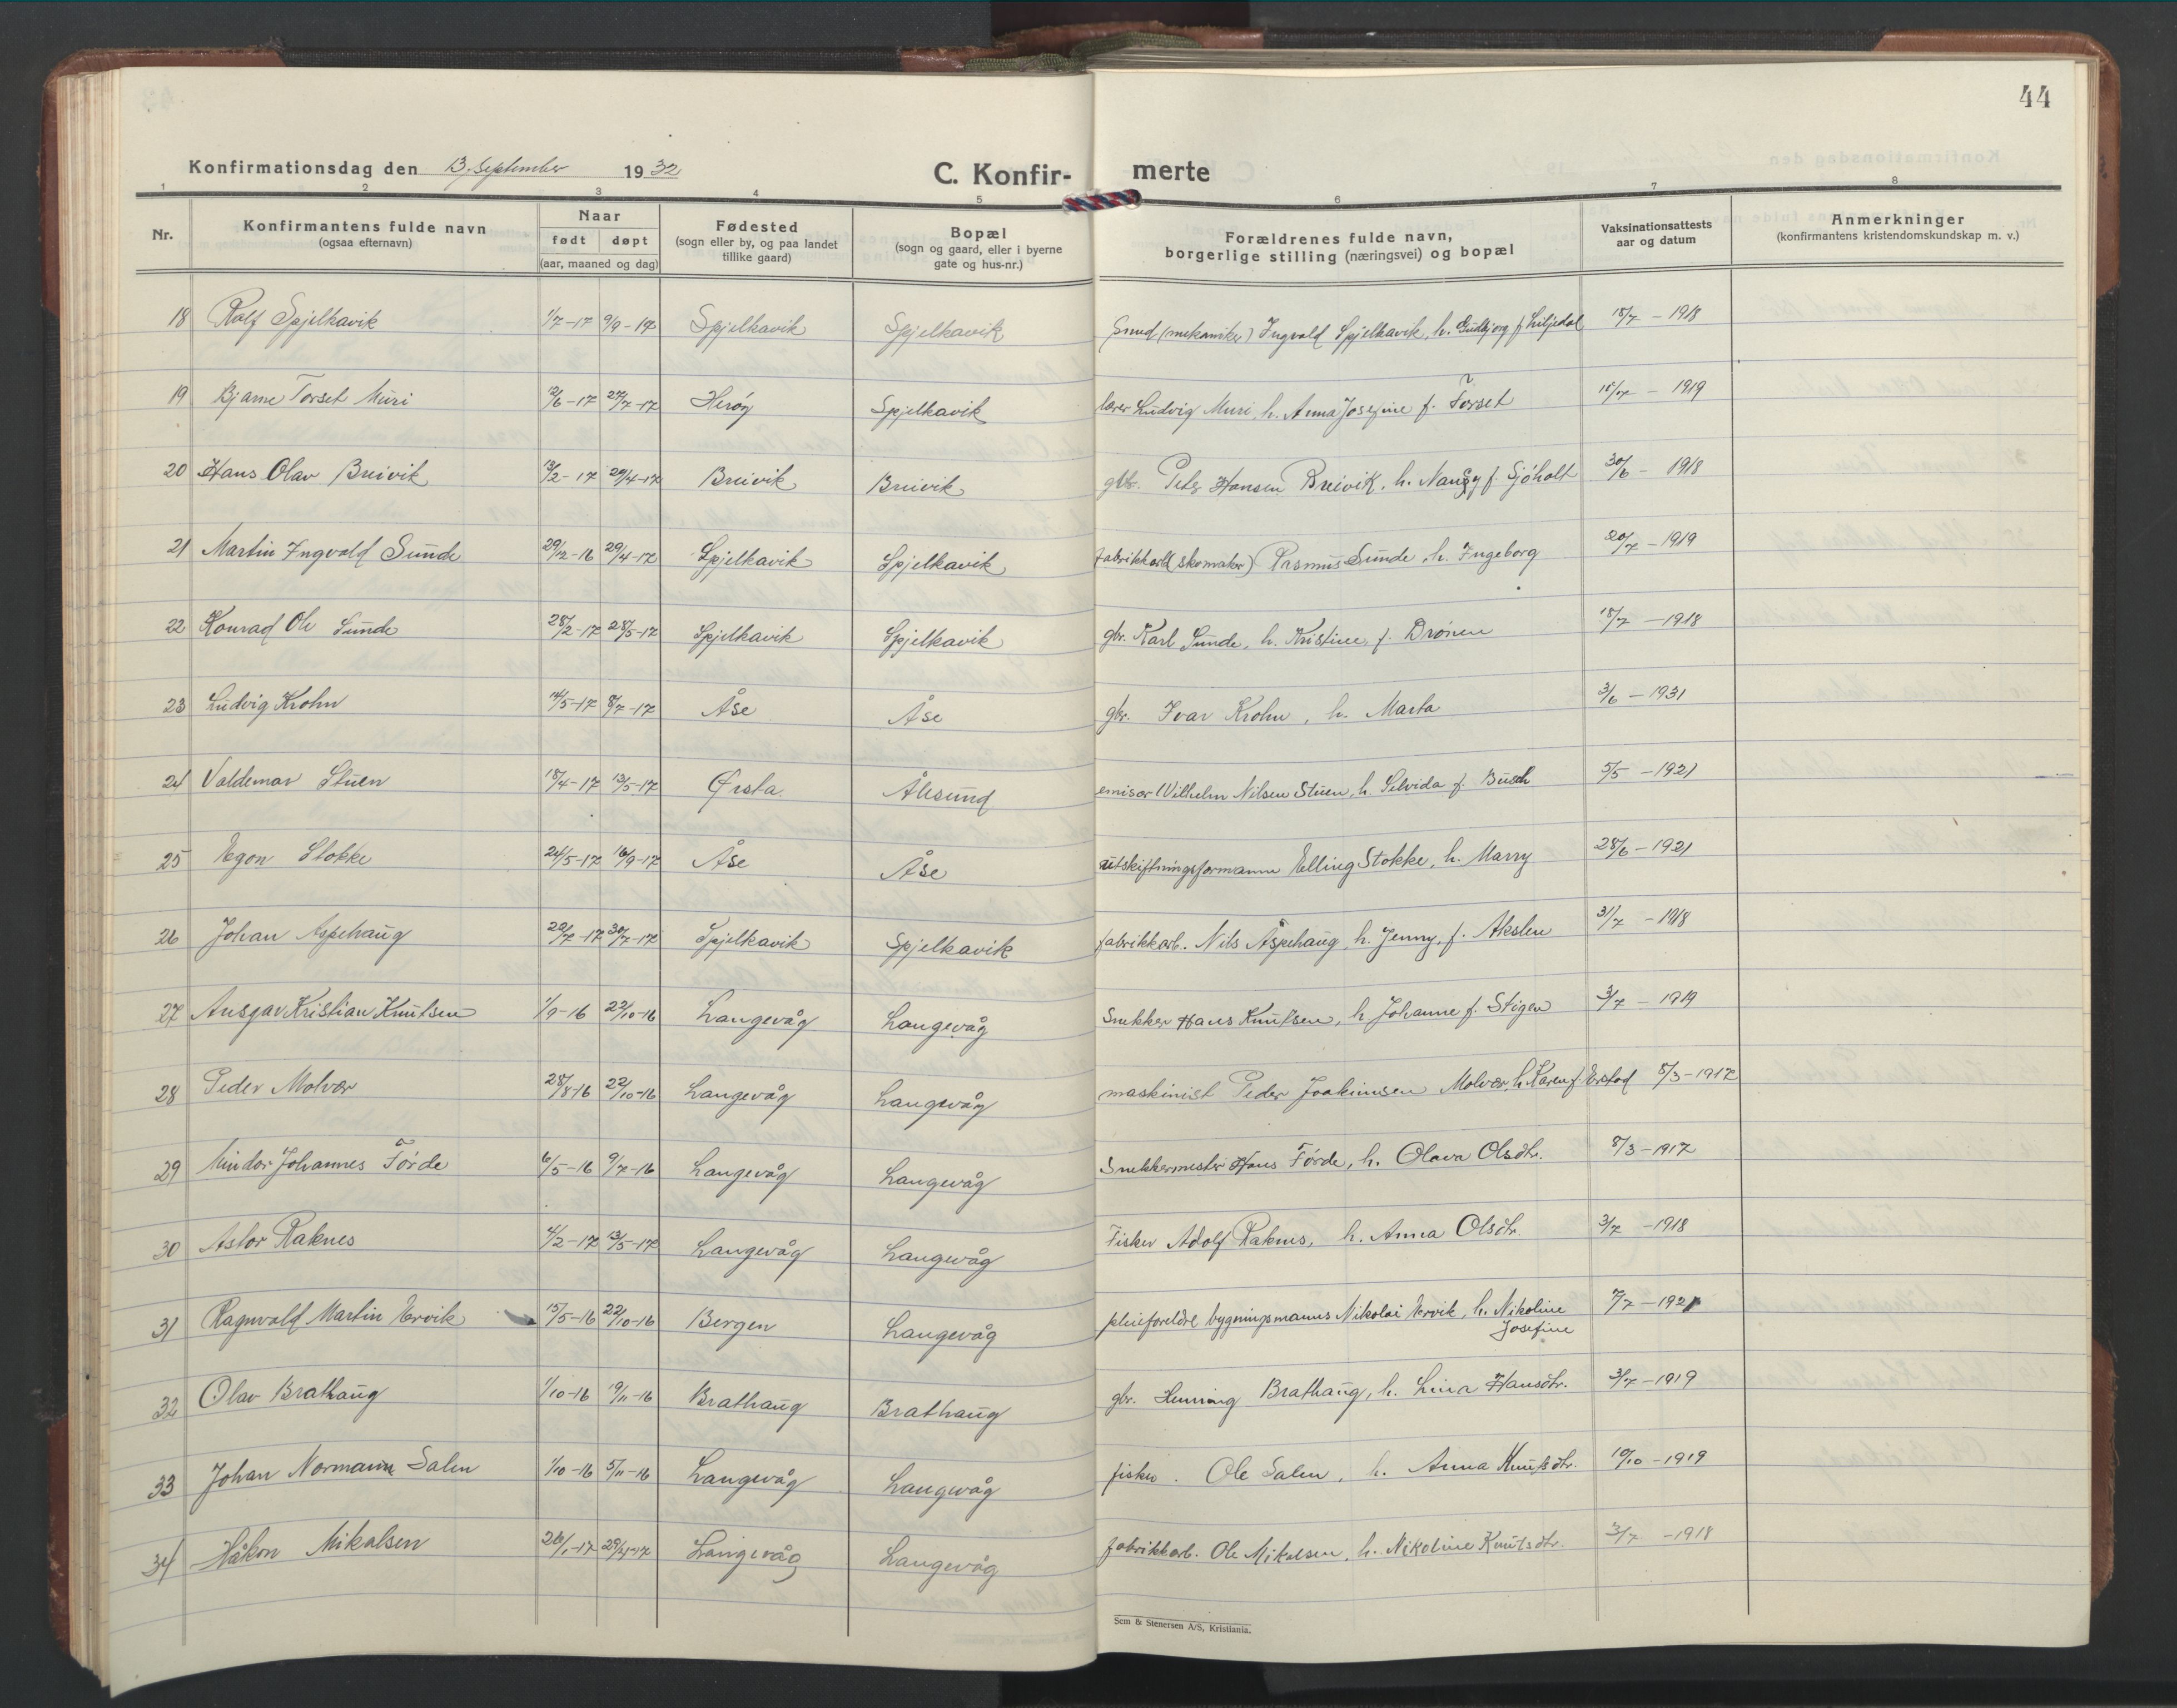 44
Konfirmationsdag den 13. September 1932
C. Konfir- merte
1 2 3 4 5 6 7 8
Nr. Konfirmantens fulde navn (ogsaa efternavn) Naar født døpt (aar, maaned og dag) Fødested (sogn eller by, og paa landet tillike gaard) Bopæl (sogn og gaard, eller i byerne gate og hus-nr.) Forældrenes fulde navn, borgerlige stilling (næringsvei) og bopæl Vaksinationsattests aar og datum Anmerkninger (konfirmantens kristendomskundskap m. v.)
18 Rolf Spjelkavik 1/7-17 9/9-17 Spjelkavik Spjelkavik (mekaniker) Ingvald Spjelkavik, h. Gudbjørg f. Liljedal 18/7 - 1918
19 Bjarne Torset Muri 12/6-17 27/7-17 Herøy Spjelkavik lærer Ludvig Muri, h. Anna Josefine f. Torset 18/7 - 1919
20 Hans Olav Breivik 13/2-17 29/4-17 Breivik Breivik gbr. Peter Hansen Breivik, h. Nancy f. Sjøholt 30/6 - 1918
21 Martin Ingvald Sunde 29/12-16 29/4-17 Spjelkavik Spjelkavik fabrikkarb (skomaker) Rasmus Sunde, h. Ingeborg 20/7 - 1919
22 Konrad Ole Sunde 28/2-17 28/5-17 Spjelkavik Spjelkavik gbr. Karl Sunde, h. Kristine, f. Drønen 18/7 - 1918
23 Ludvig Krohn 14/5-17 8/7-17 Åse Åse gbr. Ivar Krohn, h. Marta 3/6 - 1931
24 Valdemar Stuen 18/4-17 13/5-17 Ørsta Ålesund emisær Wilhelm Nilsen Stuen, h. Selvida f. Busch 5/5 - 1921
25 Egon Stokke 24/5-17 16/9-17 Åse Åse utskiftningsformann Elling Stokke, h. Marry 28/6 - 1921
26 Johan Aspehaug 22/7-17 30/7-17 Spjelkavik Spjelkavik fabrikkarb. Nils Aspehaug, h. Jenny, f. Akslen 31/7 - 1918
27 Ansgar Kristian Knutsen 1/9-16 22/10-16 Langevåg Langevåg Snekker Hans Knutsen, h. Johanne f. Stigen 3/7 - 1919
28 Peder Molvær 28/8-16 22/10-16 Langevåg Langevåg maskinist Peder Joakimsen Molvær, h. Karen f. Erstad 8/3 - 1917
29 Mindor Johannes Förde 6/5-16 9/7-16 Langevåg Langevåg Snekkermester Hans Förde, h. Olava Olsdtr. 8/3 - 1917
30 Astor Raknes 4/2-17 13/5-17 Langevåg Langevåg Fisker Adolf Raknes, h. Anna Olsdtr. 3/7 - 1918
31 Ragnvald Martin Ervik 15/5-16 22/10-16 Bergen Langevåg pleieforeldre bygningsmann Nikolai Ervik, h. Nikoline Josefine 7/7 - 1921
32 Olav Brathaug 1/10-16 19/11-16 Brathaug Brathaug gbr. Henning Brathaug, h. Lina Hansdtr. 3/7 - 1919
33 Johan Normann Salen 1/10-16 5/11-16 Langevåg Langevåg fisker. Ole Salen, h. Anna Knutsdtr. 10/10 - 1919
34 Håkon Mikalsen 26/1-17 29/4-17 Langevåg Langevåg fabrikkarb. Ole Mikalsen, h. Nikoline Knutsdtr. 3/7 - 1918
Sem & Stenersen A/S, Kristiania.